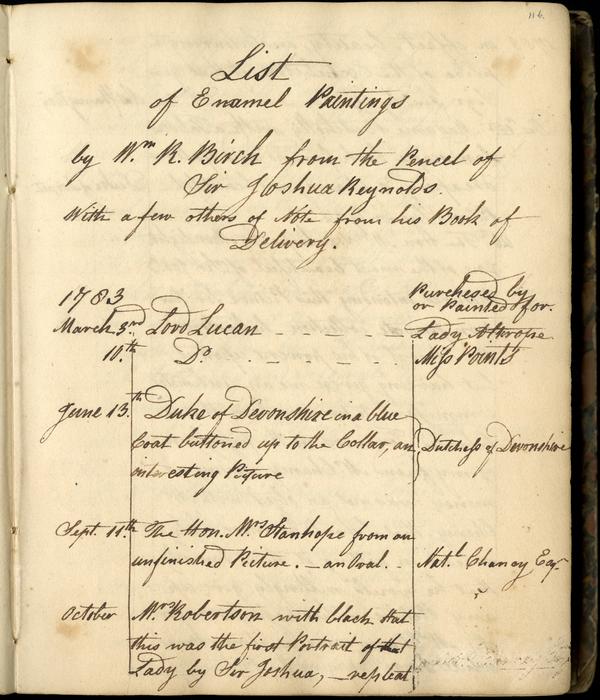 116.
List
of Enamel Paintings
by Wm R. Birch from the Pencel of
Sir Joshua Reynolds.
With a few others of Note from his Book of
Delivery.
1783
Purchesed by
or Painted for.
March 3rd Lord Lucan - - - - - Lady Althrope
10.th Do. - - - - - Miss Points
June 13.th Duke of Devonshire in a blue
Coat buttoned up to the Collar, an Dutchess of Devonshire
interesting Picture
Sept. 11.th The Hon. Mrs Stanhope from an
unfinished Picture. - an Oval. - Natl. Chancy Esqr
October Mrs Robertson with black Hat
this was the first Portrait of that
Lady by Sir Joshua, - repleat